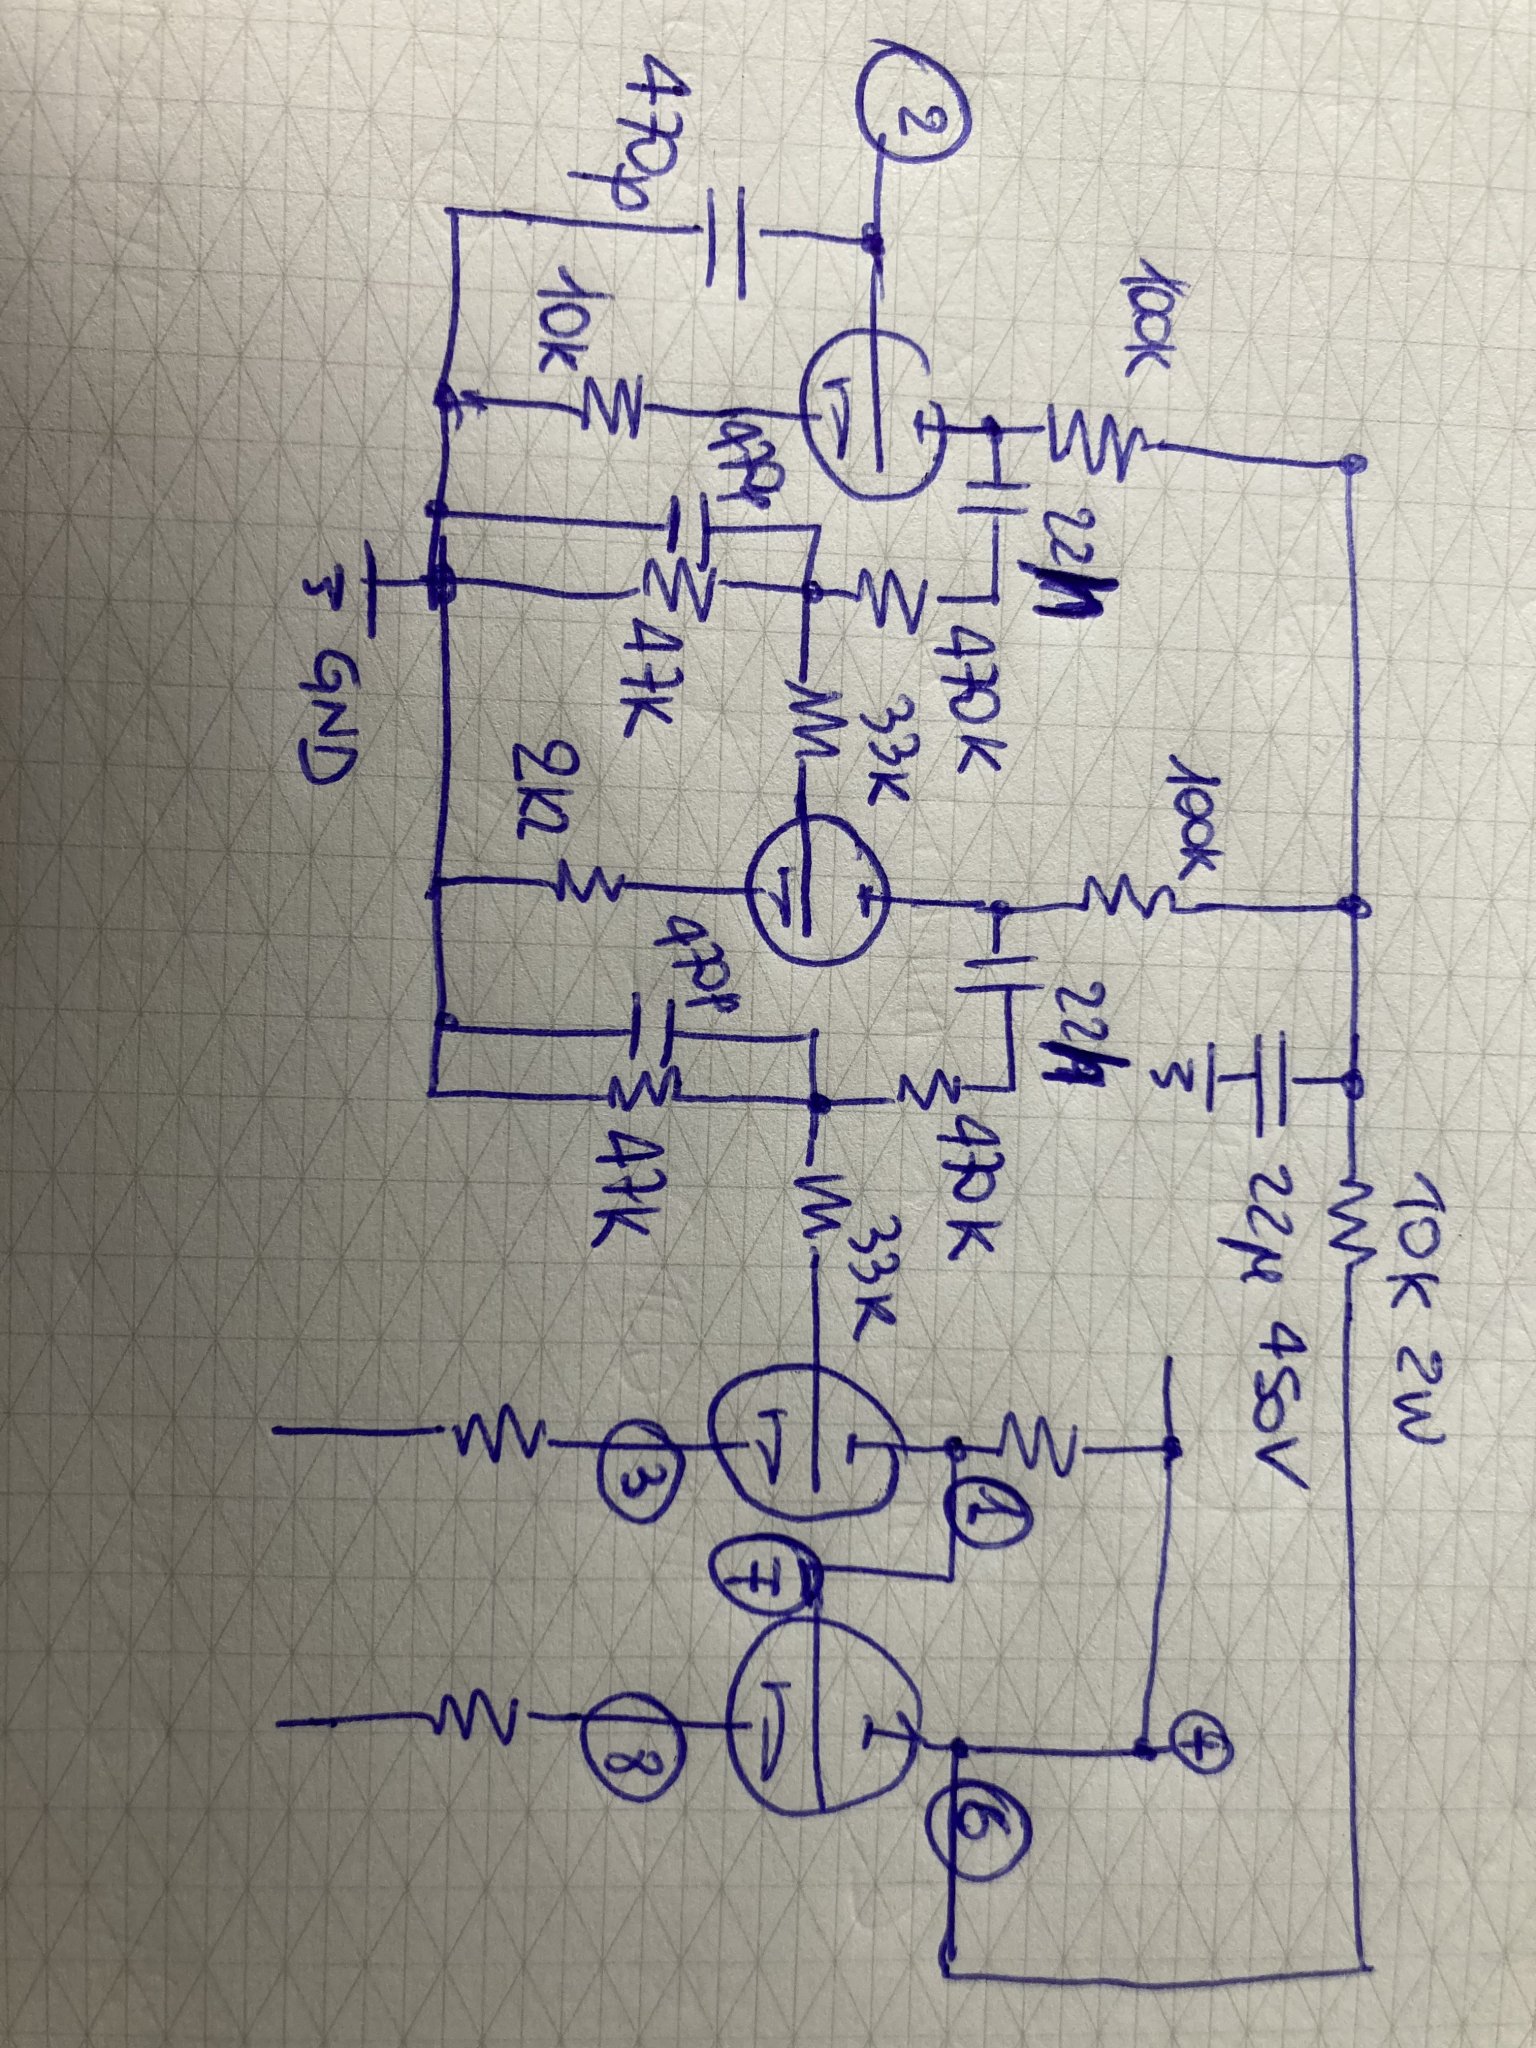 2
470p
10K
100K
470p
22n
47K
470K
33K
GND
2K2
100K
470p
22n
47K
470K
33K
22µ 450V
10K 2W
3
1
7
8
6
+